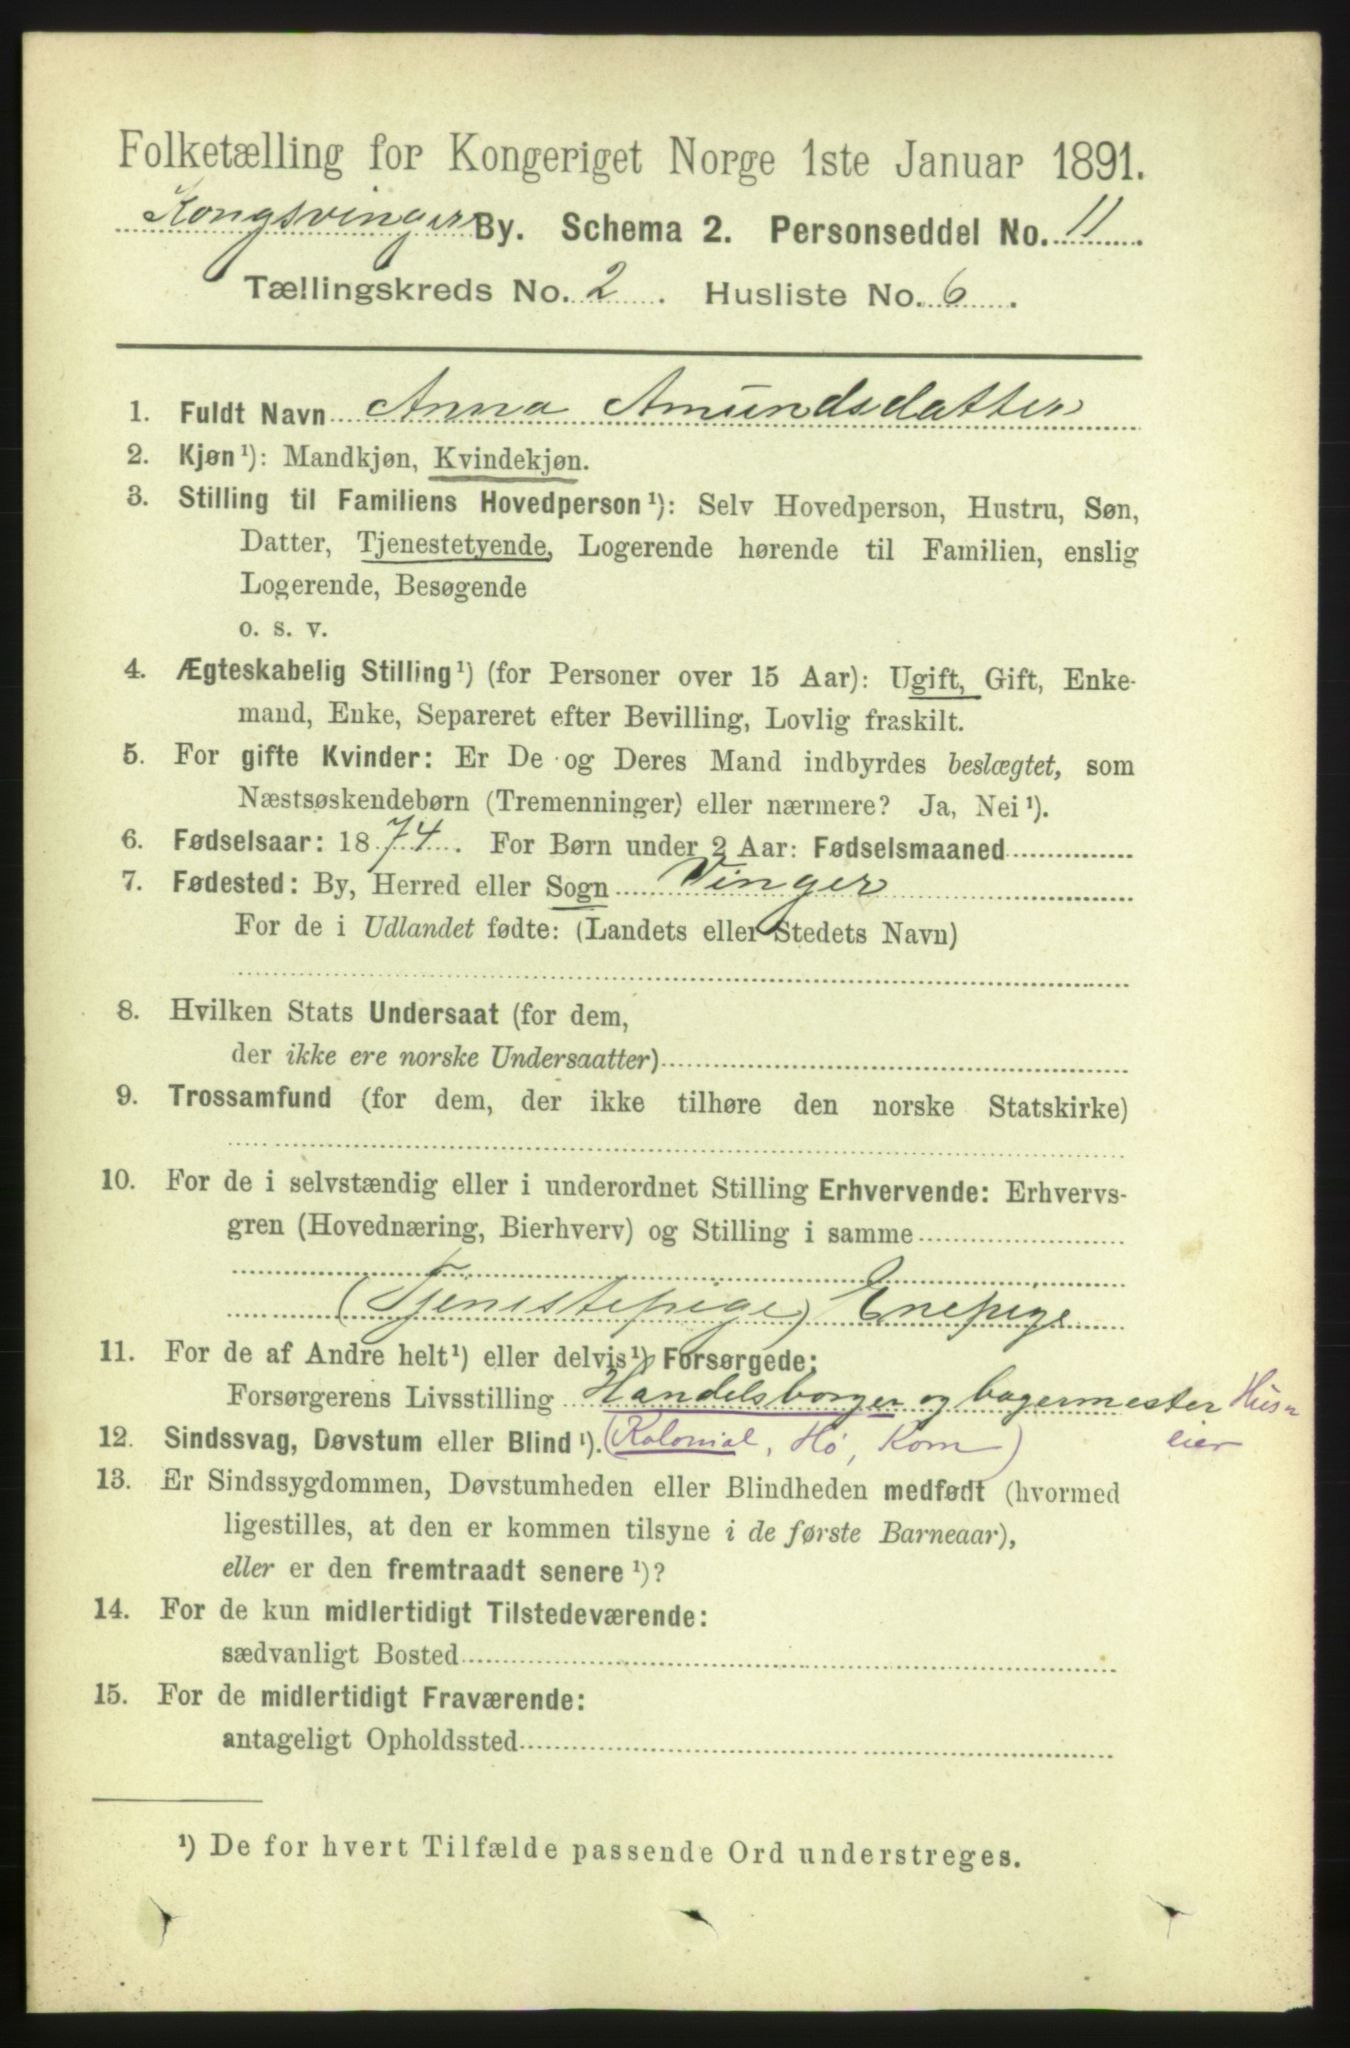 Folketælling for Kongeriget Norge 1ste Januar 1891.
Kongsvinger By. Schema 2. Personseddel No. 11.
Tællingskreds No. 2. Husliste No. 6.
1. Fuldt Navn Anna Amundsdatter
2. Kjøn¹): Mandkjøn, Kvindekjøn.
3. Stilling til Familiens Hovedperson¹): Selv Hovedperson, Hustru, Søn,
Datter, Tjenestetyende, Logerende hørende til Familien, enslig
Logerende, Besøgende
o. s. v.
4. Ægteskabelig Stilling¹) (for Personer over 15 Aar): Ugift, Gift, Enke-
mand, Enke, Separeret efter Bevilling, Lovlig fraskilt.
5. For gifte Kvinder: Er De og Deres Mand indbyrdes beslægtet, som
Næstsøskendebørn (Tremenninger) eller nærmere? Ja, Nei¹).
6. Fødselsaar: 1874. For Børn under 2 Aar: Fødselsmaaned
7. Fødested: By, Herred eller Sogn Vinger
For de i Udlandet fødte: (Landets eller Stedets Navn)
8. Hvilken Stats Undersaat (for dem,
der ikke ere norske Undersaatter)
9. Trossamfund (for dem, der ikke tilhøre den norske Statskirke)
10. For de i selvstændig eller i underordnet Stilling Erhvervende: Erhvervs-
gren (Hovednæring, Bierhverv) og Stilling i samme
(Tjenestepige) Enepige
11. For de af Andre helt¹) eller delvis¹) Forsørgede:
Forsørgerens Livsstilling Handelsborger og bagermester Hus
12. Sindssvag, Døvstum eller Blind¹). (Kolonial, Hø, Korn) eier
13. Er Sindssygdommen, Døvstumheden eller Blindheden medfødt (hvormed
ligestilles, at den er kommen tilsyne i de første Barneaar),
eller er den fremtraadt senere¹)?
14. For de kun midlertidigt Tilstedeværende:
sædvanligt Bosted
15. For de midlertidigt Fraværende:
antageligt Opholdssted
¹) De for hvert Tilfælde passende Ord understreges.